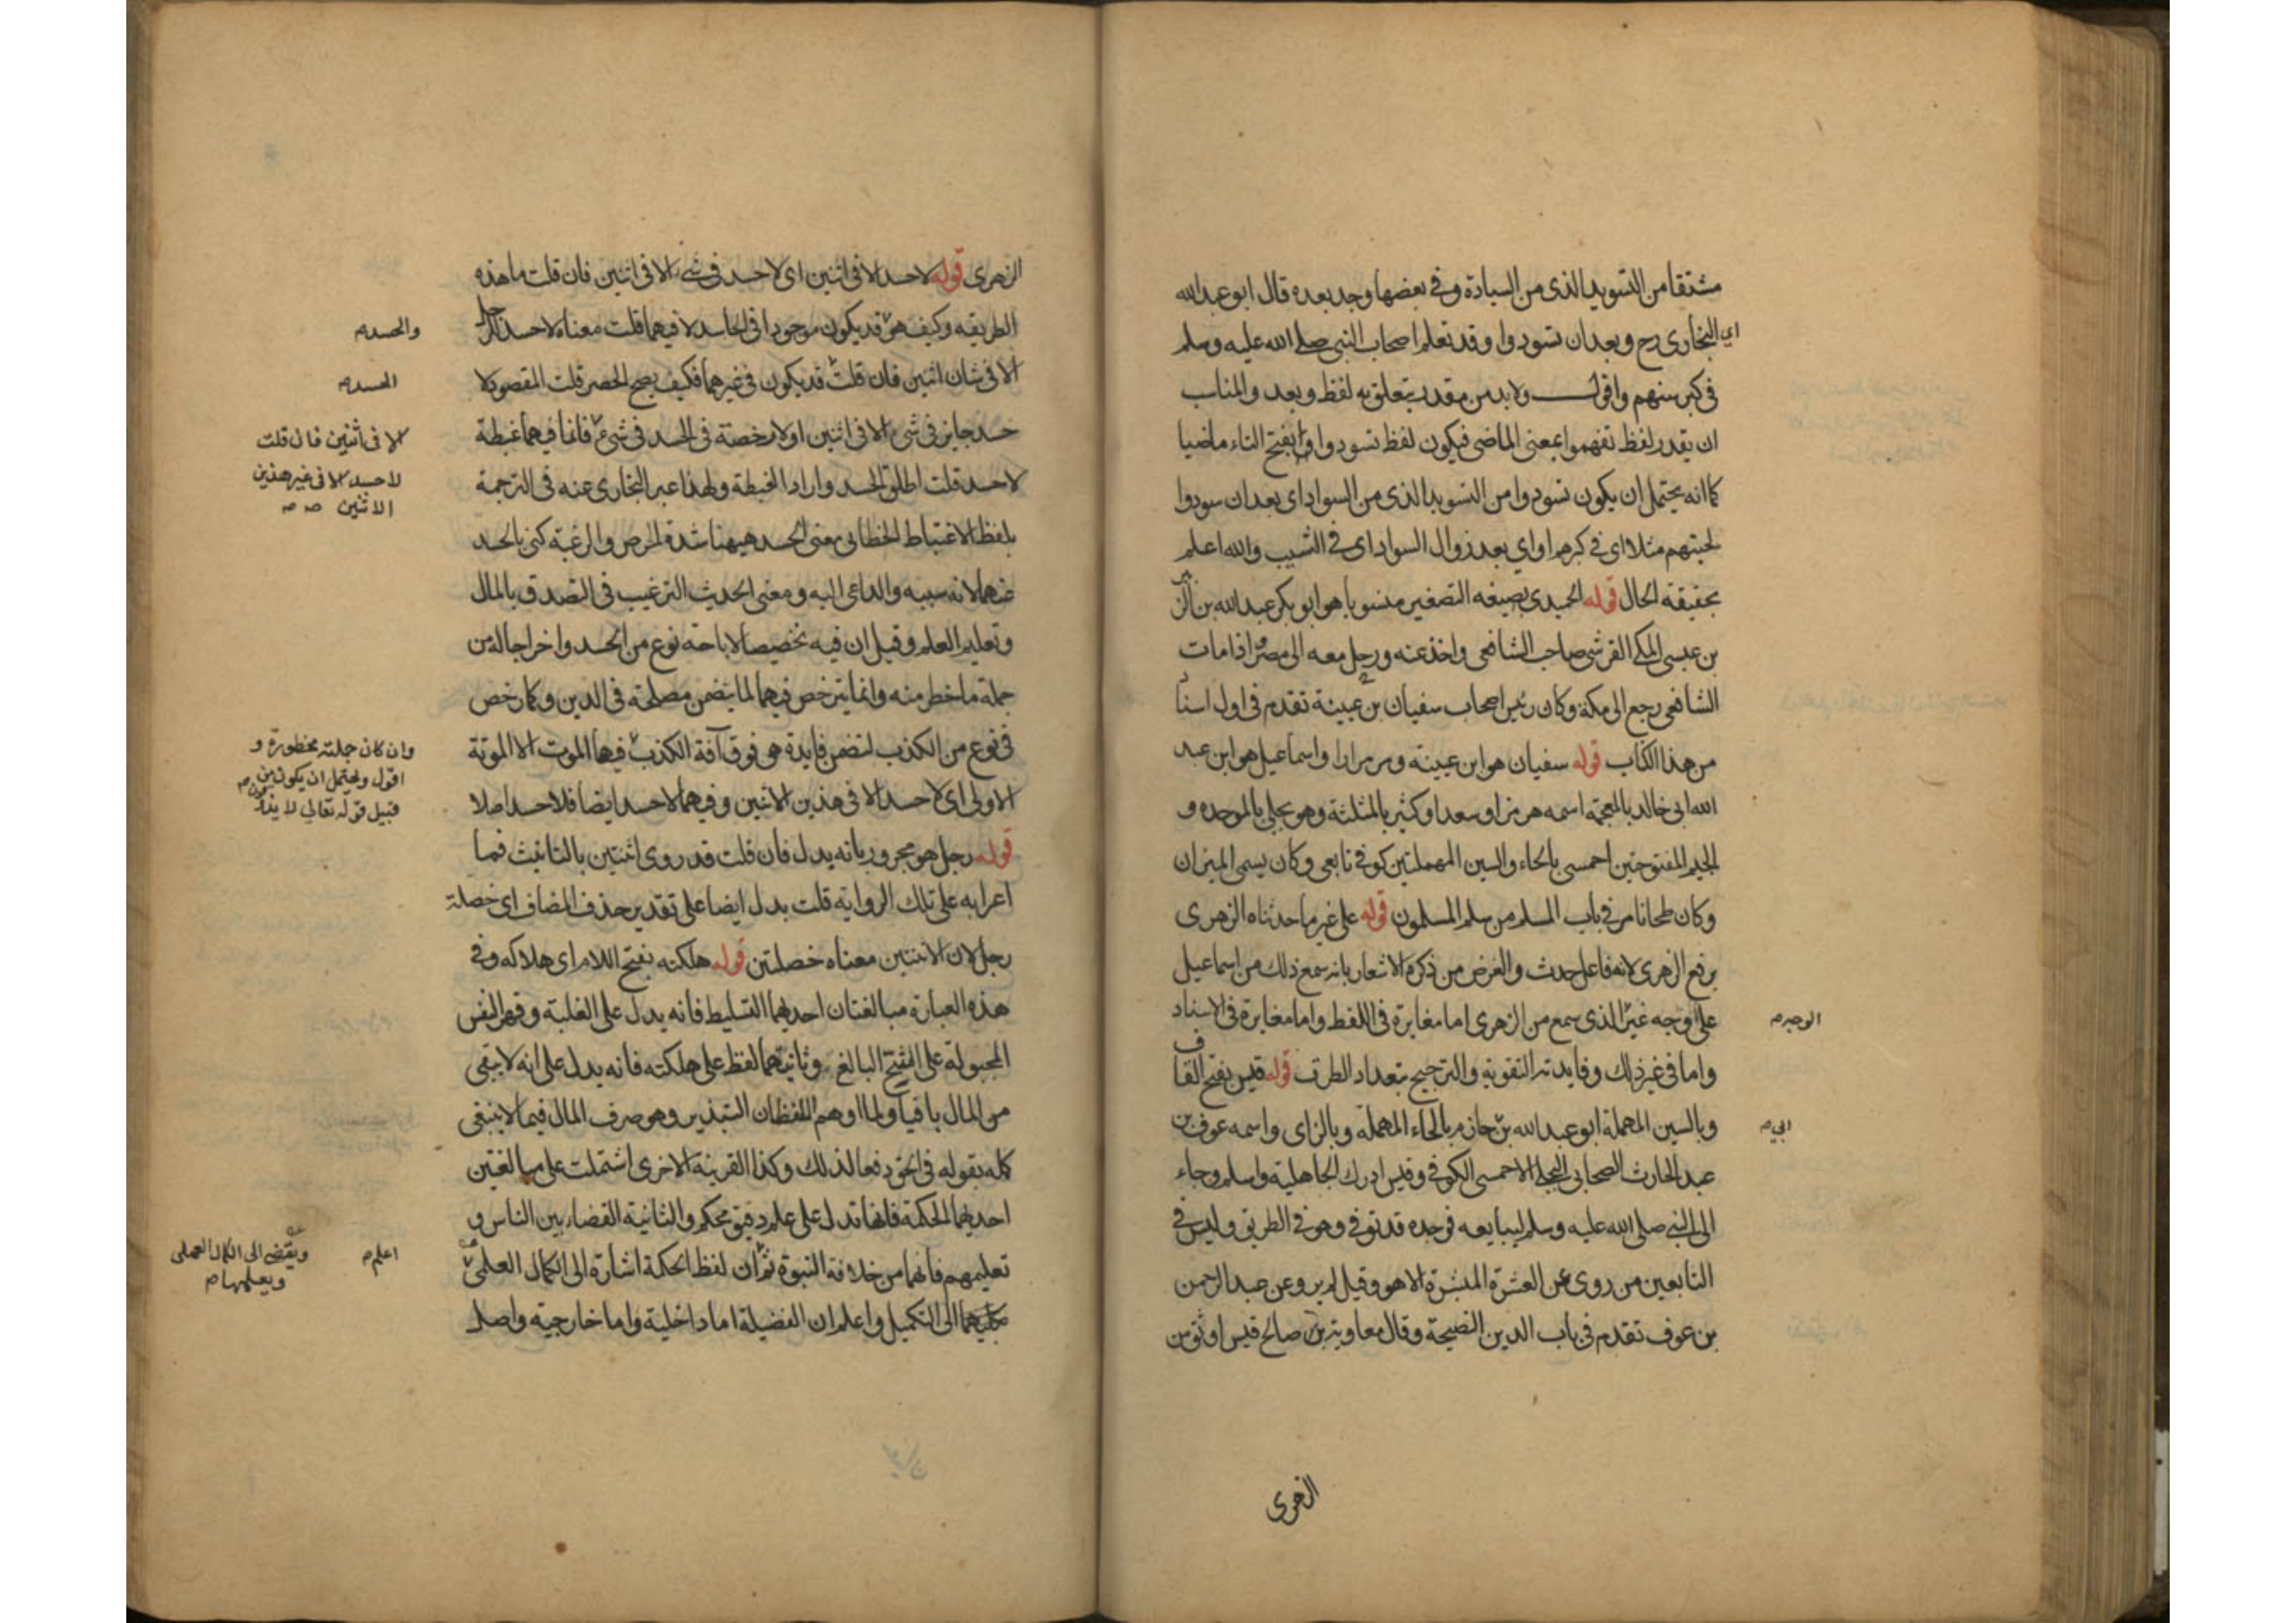 مشتقا من التسويد الذى من السيادة وفي بعضها وجد بعده قال ابو عبد الله
اي البخارى رح وبعد ان تسودوا وقد تعلم اصحاب النبى صلى الله عليه وسلم
فى كبر سنهم واقول ولابد من مقدر يتعلق به لفظ وبعد والمناسب
ان يقدر لفظ تفهموا بمعنى الماضى فيكون لفظ تسودوا بفتح التاء ماضيا
كما انه يحتمل ان يكون تسودوا من التسويد الذى من السواد اى بعد ان سودوا
لحيتهم مثلا اى فى كبرهم او اي بعد زوال السواد اى فى الشيب والله اعلم
بحقيقة الحال قوله الحميدى بصيغه التصغير منسوبا هو ابو بكر عبد الله بن الزبير
بن عيسى المكى القرشى صاحب الشافعى واخذ عنه ورحل معه الى مصر اذا مات
الشافعى رجع الى مكة وكان رئيس اصحاب سفيان بن عيينة تقدم فى اول اسناد
من هذا الكتاب قوله سفيان هو ابن عيينه ومر مرارا واسماعيل هو ابن عبد
الله ابى خالد بالمعجمة اسمه هرمز او سعد او كثير بالمثلثة وهو بجلى بالموحده و
الجيم المفتوحتين احمسى بالحاء والسين المهملتين كوفى تابعى وكان يسمى الميزان
وكان طحانا مر فى باب المسلم من سلم المسلمون قوله على غير ما حدثناه الزهرى
برفع الزهرى لانه فاعل حدث والغرض من ذكره الاشعار بانه سمع ذلك من اسماعيل
على وجه غير الذى سمع من الزهرى اما مغايرة فى اللفظ واما مغايرة فى الاسناد
الوجه
واما فى غير ذلك وفايدته التقوية والترجيح بتعداد الطرق قوله قيس بفتح القاف
وبالسين المهملة ابو عبد الله بن حازم بالحاء المهملة وبالزاى واسمه عوف بن
ابي
عبد الحارث الصحابى البجلى الاحمسى الكوفى وقيس ادرك الجاهلية واسلم وجاء
الى النبى صلى الله عليه وسلم ليبايعه فوجده قد توفى وهو فى الطريق وليس فى
التابعين من روى عن العشرة المبشرة الا هو وقيل لم يرو عن عبد الرحمن
بن عوف تقدم فى باب الدين النصيحة وقال معاوية بن صالح قيس اوثق من
الزهرى
الزهرى قوله لا حسد الا فى اثنين اى لا حسد فى شىء الا فى اثنين فان قلت ما هذه
الطريقه وكيف هو قد يكون موجودا فى الحاسد لا فيهما قلت معناه لا حسد للرجل
والحسد
الا فى شان اثنين فان قلت قد يكون فى غيرهما فكيف يصح الحصر قلت المقصود لا
الحسد
حسد جايز فى شى الا فى اثنين او لا رخصة فى الحسد فى شى فانما فيهما غبطة
الا فى اثنين فان قلت
لا حسد قلت اطلق الحسد واراد الغبطة ولهذا عبر البخارى عنه فى الترجمة
لا حسد الا فى غير هذين
الاثنين
بلفظ الاغتباط الخطابى معنى الحسد هيهنا شدة الحرص والرغبة كنى بالحسد
عنهما لانه سببه والداعى اليه ومعنى الحديث الترغيب فى التصدق بالمال
وتعليم العلم وقيل ان فيه تخصيصا لاباحة نوع من الحسد واخراجا له من
جملة ما حظر منه وانما يترخص فيهما لما يتضمن مصلحة فى الدين وكما رخص
فى نوع من الكذب لتضمن فايدة هو فوق آفة الكذب فيها الموت الا الموتة
وان كان جملته محظورة و
اقول ويحتمل ان يكون من
قبيل قوله تعالى لا يذوقون
الاولى اى لا حسد الا فى هذين الاثنين وفيهما لا حسد ايضا فلا حسد اصلا
قوله رجل هو مجرور بانه بدل فان قلت قد روى اثنتين بالتانيث فما
اعرابه على تلك الرواية قلت بدل ايضا على تقدير حذف المضاف اى خصلة
رجل لان الاثنتين معناه خصلتين قوله هلكته بفتح اللام اى هلاكه وفى
هذه العبارة مبالغتان احديهما التسليط فانه يدل على الغلبة وقهر النفس
المجبولة على الشح البالغ وثانيتهما لفظ على هلكته فانه يدل على انه لا يبقى
من المال باقيا ولما اوهم اللفظان التبذير وهو صرف المال فيما لا ينبغى
كمله بقوله فى الحق دفعا لذلك وكذا القرينة الاخرى اشتملت على مبالغتين
احديهما الحكمة فانها تدل على علم دقيق محكم والثانية القضاء بين الناس و
تعليمهم فانهما من خلافة النبوة ثم ان لفظ الحكمة اشارة الى الكمال العلمى
اعلم
ويقضى الى الكمال العملى
ويعلمها
بكليهما الى التكميل واعلم ان الفضيلة اما داخلية واما خارجية واصل